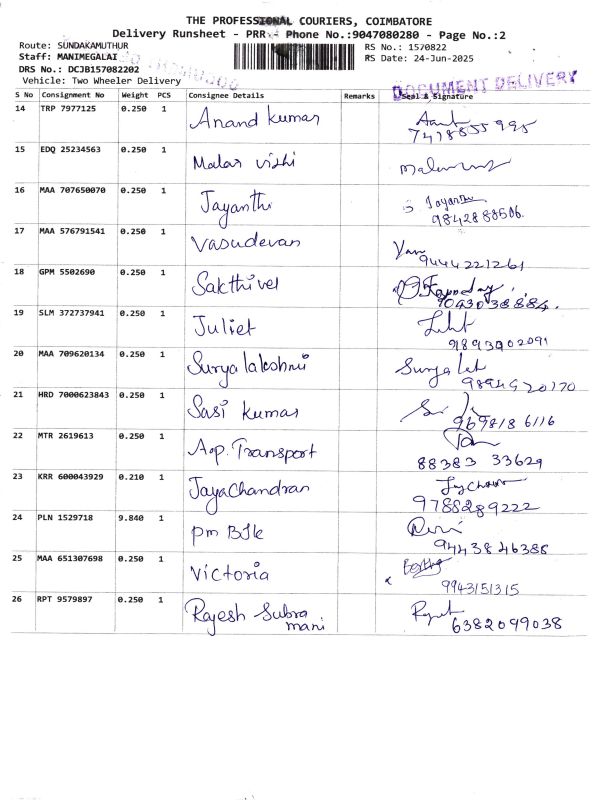 THE PROFESSIONAL COURIERS, COIMBATORE
Delivery Runsheet - PRR - Phone No.:9047080280 - Page No.:2
Route: SUNDAKAMUTHUR
RS No.: 1570822
Staff: MANIMEGALAI
RS Date: 24-Jun-2025
DRS No.: DCJB157082202
Vehicle: Two Wheeler Delivery
DOCUMENT DELIVERY
S No Consignment No Weight PCS Consignee Details Remarks Seal & Signature
14 TRP 7977125 0.250 1 Anand kumar
15 EDQ 25234563 0.250 1 Malar vizhi
16 MAA 707650070 0.250 1 Jayanthi Jayanthi
9842888506
17 MAA 576791541 0.250 1 Vasudevan
9444221261
18 GPM 5502690 0.250 1 Sakthivel
19 SLM 372737941 0.250 1 Juliet
9893902091
20 MAA 709620134 0.250 1 Suryalakshmi
9894920170
21 HRD 7000623843 0.250 1 Sasi kumar
969818 6116
22 MTR 2619613 0.250 1 A.p. Transport
88383 33629
23 KRR 600043929 0.210 1 JayaChandran
9788289222
24 PLN 1529718 9.840 1 pm BJk
9443846386
25 MAA 651307698 0.250 1 Victoria
9943151315
26 RPT 9579897 0.250 1 Rajesh Subra
mani
6382099038